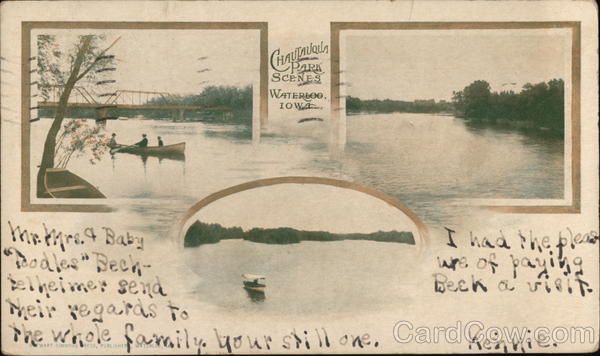 Chautauqua
Park
Scenes
Waterloo,
Iowa
Mr. Mrs. & Baby
"Toodles" Bech-
telheimer send
their regards to
the whole family. Your still one.
I had the pleas
ure of paying
Beck a visit.
CardCow.com